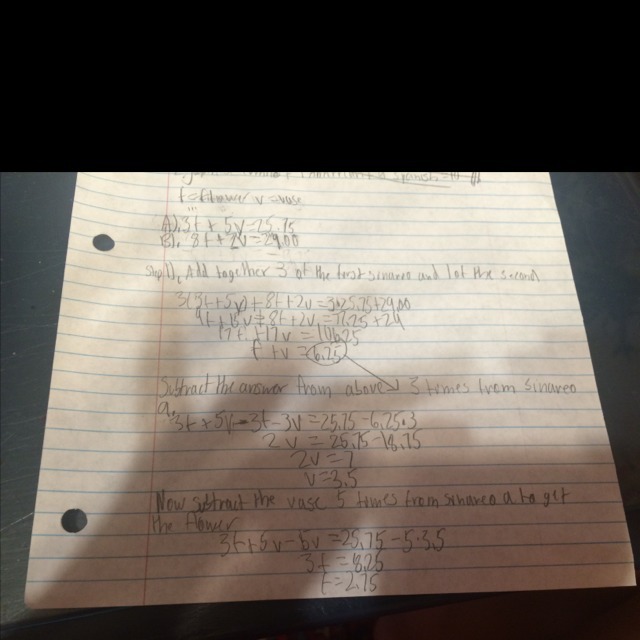 f=flower v=vase
A). 3f + 5v = 25.75
B). 8f + 2v = 29.00
Step 1), Add together 3 of the first and 1 of the second
3(3f+5v)+8f+2v=3x25.75+29.00
17f+17v=106.25
f+v=6.25
Subtract the answer from above 3 times from
a.
3f+5v-3f-3v=25.75-6.25.3
2v=25.75-18.75
2v=7
v=3.5
Now subtract the vase 5 times from a to get
the flower
3f+5v-5v=25.75-5.3.5
3f=8.25
f=2.75